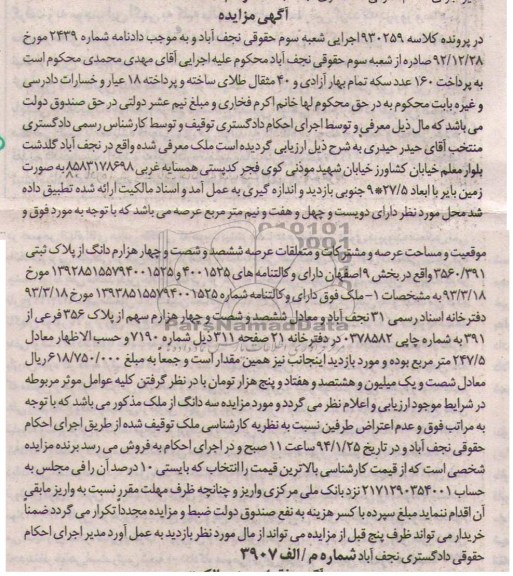 آگهی مزایده
در پرونده کلاسه ۹۳۰۲۵۹ اجرایی شعبه سوم حقوقی نجف آباد و به موجب دادنامه شماره ۲۴۳۹ مورخ
۹۲/۱۲/۲۸ صادره از شعبه سوم حقوقی نجف آباد محکوم علیه اجرایی آقای مهدی محمدی محکوم است
به پرداخت ۱۶۰ عدد سکه تمام بهار آزادی و ۴۰ مثقال طلای ساخته و پرداخته ۱۸ عیار و خسارات دادرسی
و غیره بابت محکوم به در حق محکوم لها خانم اکرم فخاری و مبلغ نیم عشر دولتی در حق صندوق دولت
می باشد که مال ذیل معرفی و توسط اجرای احکام دادگستری توقیف و توسط کارشناس رسمی دادگستری
منتخب آقای حیدر حیدری به شرح ذیل ارزیابی گردیده است ملک معرفی شده واقع در نجف آباد گلدشت
بلوار معلم خیابان کشاورز خیابان شهید موذنی کوی فجر کدپستی همسایه غربی ۸۵۸۳۱۷۸۶۹۸ به صورت
زمین بایر با ابعاد ۲۷/۵*۹ جنوبی بازدید و اندازه گیری به عمل آمد و اسناد مالکیت ارائه شده تطبیق داده
شد محل مورد نظر دارای دویست و چهل و هفت و نیم متر مربع عرصه می باشد که با توجه به مورد فوق و
موقعیت و مساحت عرصه و مشترکات و متعلقات عرصه ششصد و شصت و چهار هزارم دانگ از پلاک ثبتی
۳۵۶۰/۳۹۱ واقع در بخش ۹ اصفهان دارای وکالتنامه های ۴۰۰۱۵۲۵ و ۱۳۹۲۸۵۱۵۵۷۹۴۰۰۱۵۲۵ مورخ
۹۳/۳/۱۸ به مشخصات ۱- ملک فوق دارای وکالتنامه شماره ۱۳۹۳۸۵۱۵۵۷۹۴۰۰۱۵۲۵ مورخ ۹۳/۳/۱۸
دفترخانه اسناد رسمی ۳۱ نجف آباد و معادل ششصد و شصت و چهار هزارم سهم از پلاک ۳۵۶ فرعی از
۳۹۱ به شماره چاپی ۰۳۷۸۵۸۲ در دفترخانه ۲۱ صفحه ۳۱۱ ذیل شماره ۷۱۹۰ و حسب الاظهار معادل
۲۴۷/۵ متر مربع بوده و مورد بازدید اینجانب نیز همین مقدار است و جمعاً به مبلغ ۶۱۸/۷۵۰/۰۰۰ ریال
معادل شصت و یک میلیون و هشتصد و هفتاد و پنج هزار تومان با در نظر گرفتن کلیه عوامل موثر مربوطه
در شرایط موجود ارزیابی و اعلام نظر می گردد و مورد مزایده سه دانگ از ملک مذکور می باشد که با توجه
به مراتب فوق و عدم اعتراض طرفین نسبت به نظریه کارشناسی ملک توقیف شده از طریق اجرای احکام
حقوقی نجف آباد و در تاریخ ۹۴/۱/۲۵ ساعت ۱۱ صبح و در اجرای احکام به فروش می رسد برنده مزایده
شخصی است که از قیمت کارشناسی بالاترین قیمت را انتخاب که بایستی ۱۰ درصد آن را فی مجلس به
حساب ۲۱۷۱۲۹۰۳۵۴۰۰۱ نزد بانک ملی مرکزی واریز و چنانچه ظرف مهلت مقرر نسبت به واریز مابقی
آن اقدام ننماید مبلغ سپرده با کسر هزینه به نفع صندوق دولت ضبط و مزایده مجدداً تکرار می گردد ضمناً
خریدار می تواند ظرف پنج قبل از مزایده می تواند از مال مورد نظر بازدید به عمل آورد مدیر اجرای احکام
حقوقی دادگستری نجف آباد شماره م / الف ۳۹۰۷